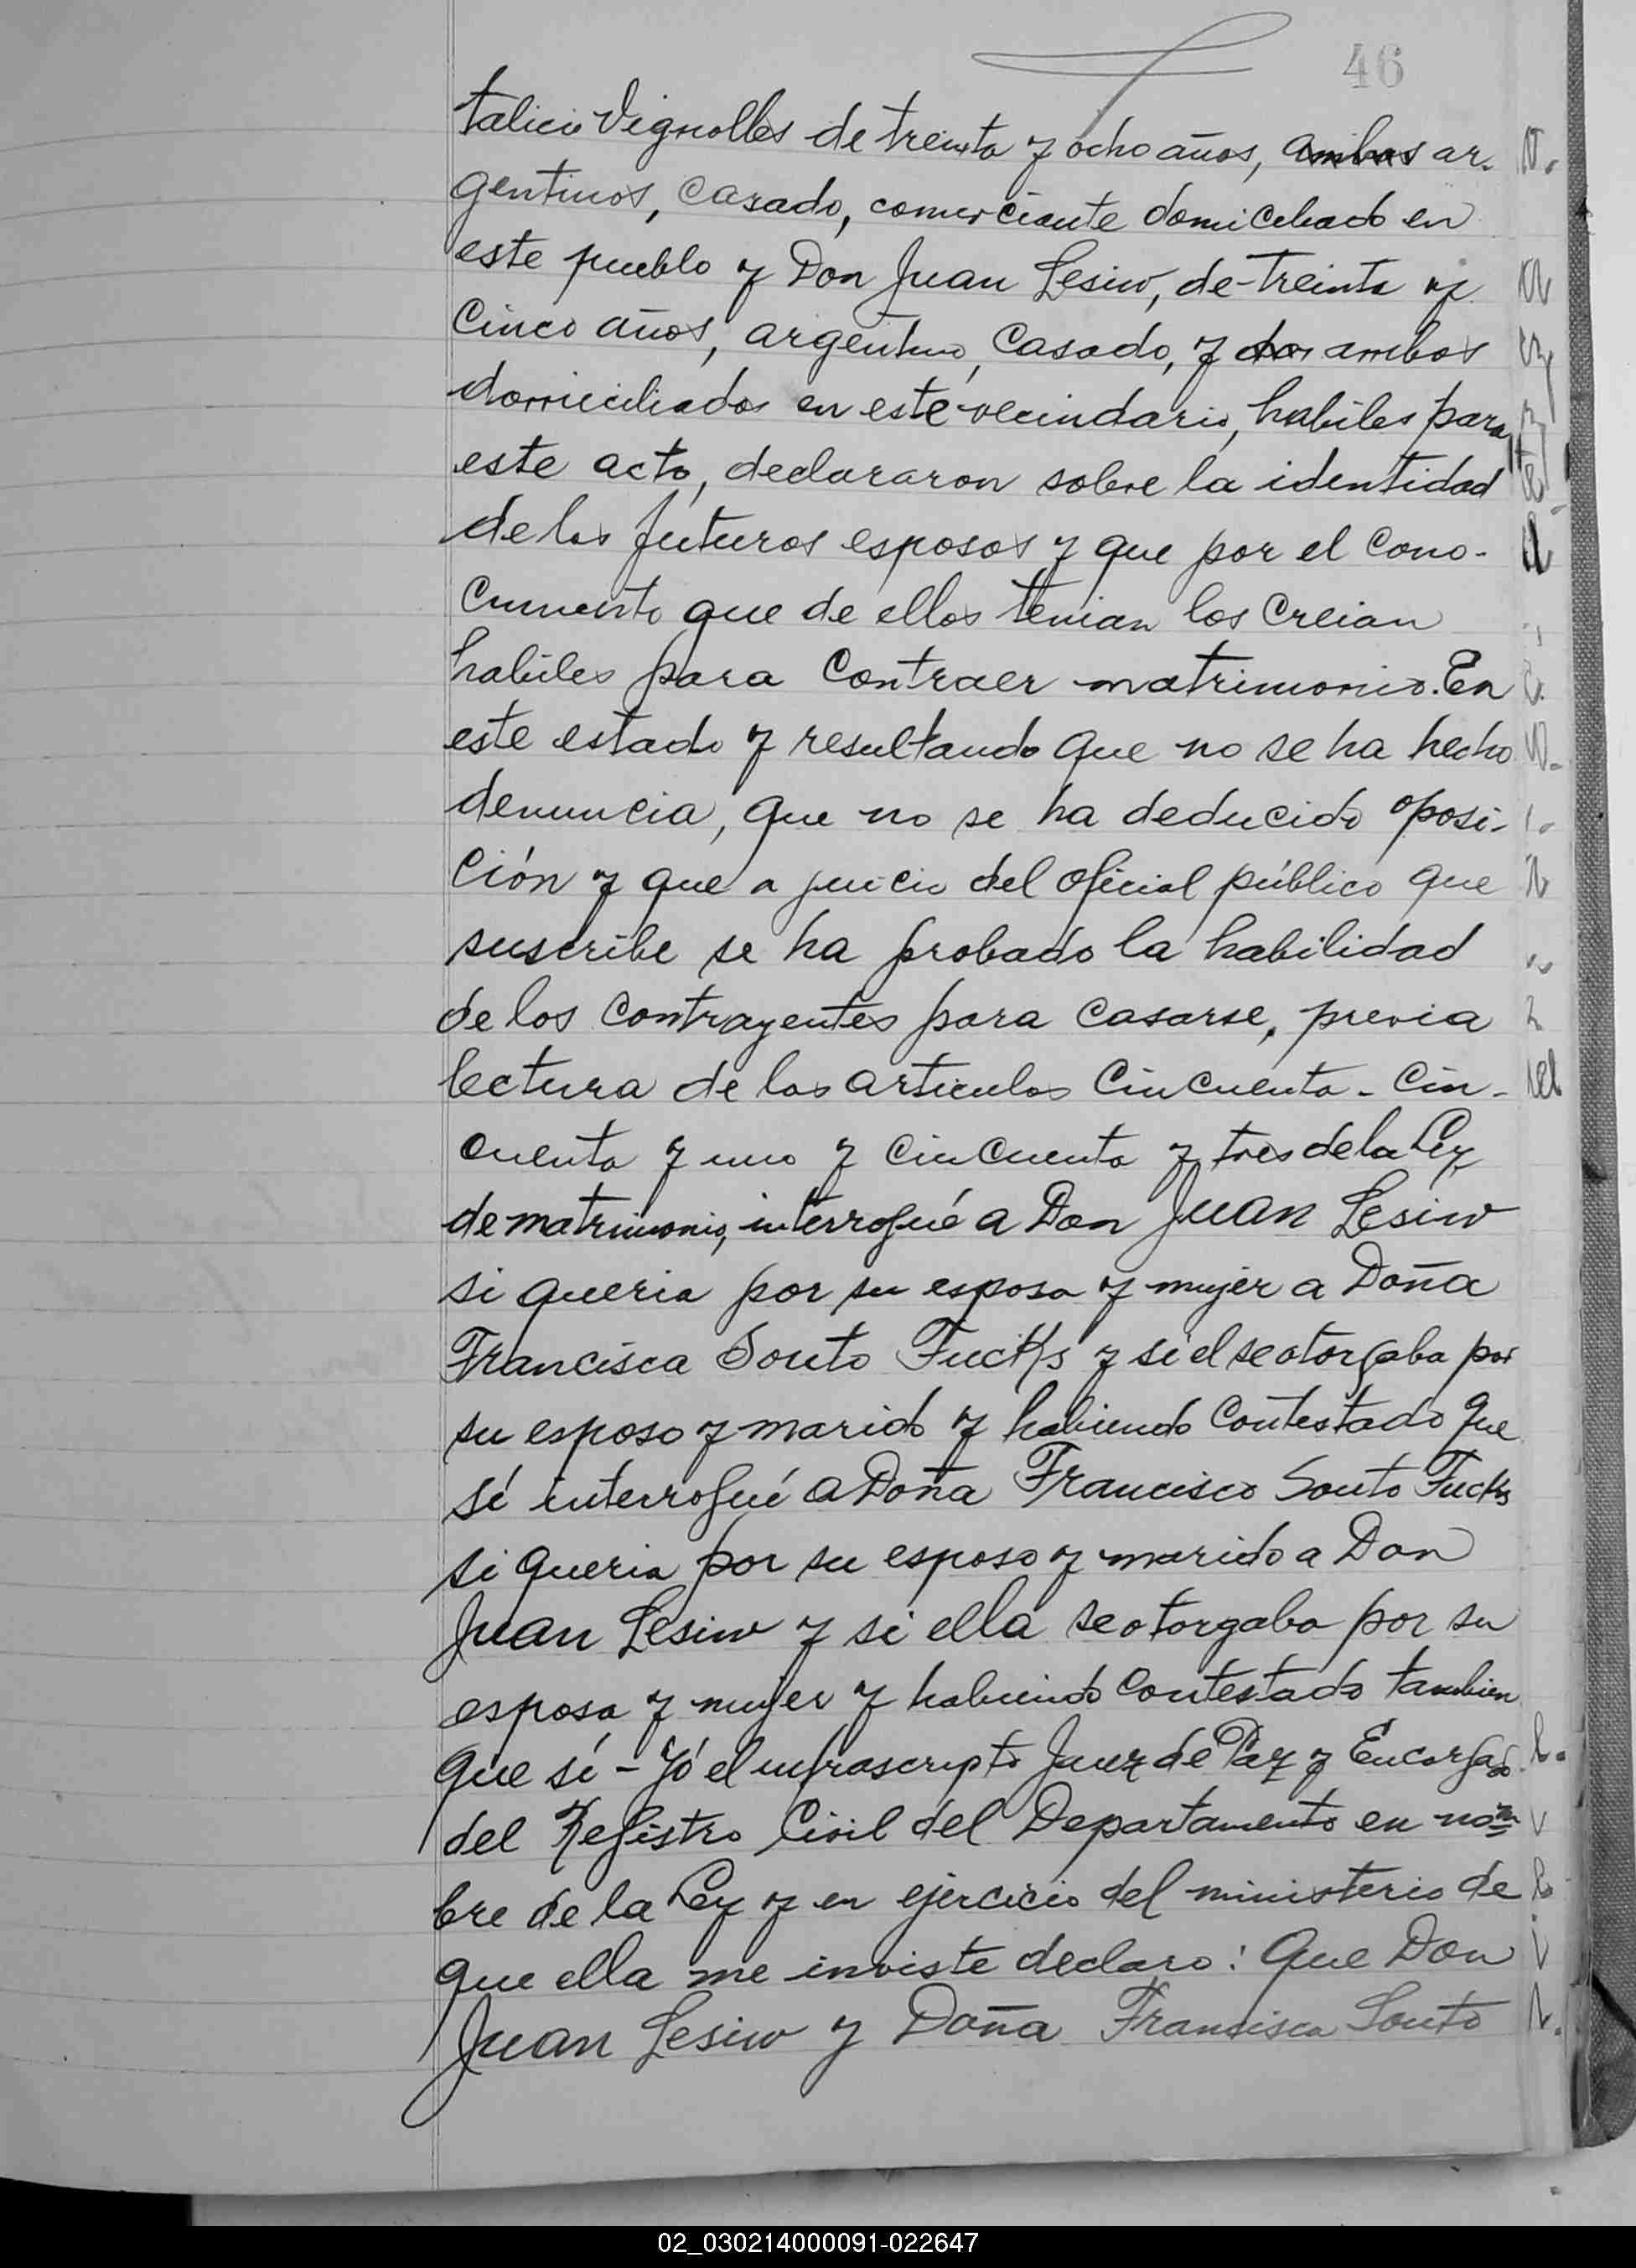 46
talicio Vignolles de treinta y ocho años, ambos ar-
gentinos, casado, comerciante domiciliado en
este pueblo y Don Juan Lesiw, de treinta y
cinco años, argentino, casado, y dos ambos
domiciliados en este vecindario, habiles para
este acto, declararon sobre la identidad
de los futuros esposos y que por el cono-
cimiento que de ellos tenian los creian
habiles para contraer matrimonio. En
este estado y resultando que no se ha hecho
denuncia, que no se ha deducido oposi-
ción y que a juicio del oficial público que
suscribe se ha probado la habilidad
de los contrayentes para casarse, previa
lectura de los articulos cincuenta - cin-
cuenta y uno y cincuenta y tres de la Ley
de matrimonio, interrogué a Don Juan Lesiw
si queria por su esposa y mujer a Doña
Francisca Souto Fucks y si el se otorgaba por
su esposo y marido y habiendo contestado que
sí interrogué a Doña Francisca Souto Fucks
si queria por su esposo y marido a Don
Juan Lesiw y si ella se otorgaba por su
esposa y mujer y habiendo contestado tambien
que sí - Yó el infrascripto Juez de Paz y Encargado
del Registro Civil del Departamento en nom
bre de la Ley y en ejercicio del ministerio de
que ella me inviste declaro: Que Don
Juan Lesiw y Doña Francisca Souto
02_030214000091-022647